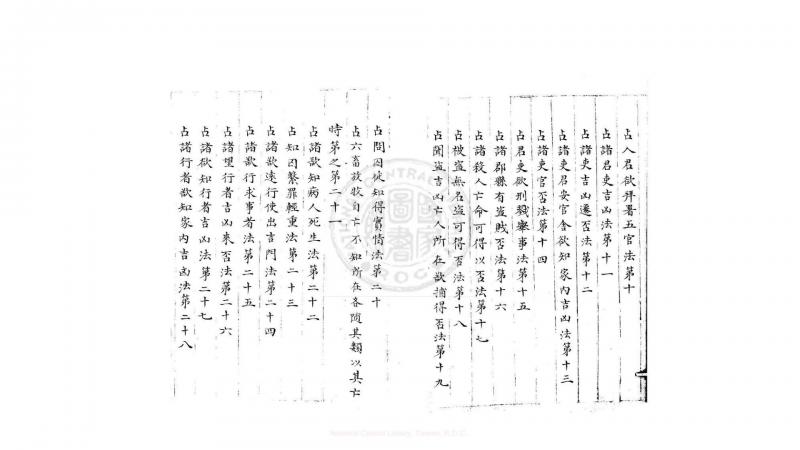 占人君欲拜署五官法第十
占諸君吏吉凶法第十一
占諸吏吉凶遷否法第十二
占諸吏君安官舍欲知家內吉凶法第十三
占諸吏官否法第十四
占君吏欲刑戮舉事法第十五
占諸郡縣有盜賊否法第十六
占諸殺人亡命可得以否法第十七
占被盜無名盜可得否法第十八
占聞盜吉凶亡人所在欲捕得否法第十九
占問囚徒知得實情法第二十
占六畜放牧自亡不知所在各隨其類以其亡
時第之第二十一
占諸欲知病人死生法第二十二
占知囚繫罪輕重法第二十三
占諸欲遠行使出吉門法第二十四
占諸欲行求事者法第二十五
占諸望行者吉凶來否法第二十六
占諸欲知行者吉凶法第二十七
占諸行者欲知家內吉凶法第二十八
National Central Library, Taiwan, R.O.C.